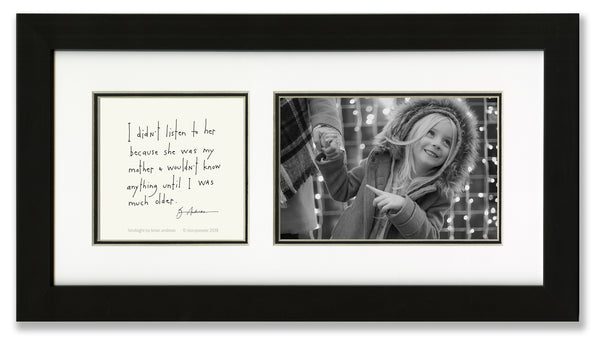 I didn't listen to her
because she was my
mother & wouldn't know
anything until I was
much older.
hindsight by brian andreas © storypeople 2019